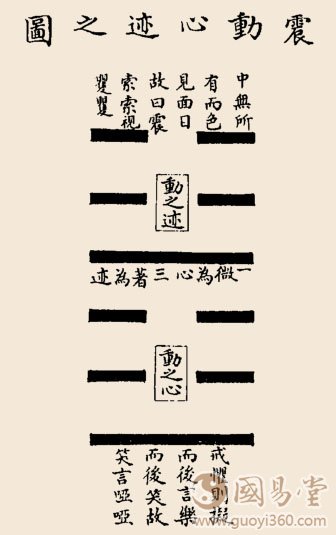 震動心迹之圖
中無所
有而色
見面日
故曰震
索索視
矍矍
動之迹
一微為心三著為迹
動之心
戒懼則擬
而後言樂
而後笑故
笑言啞啞
國易堂
www.guoyi360.com